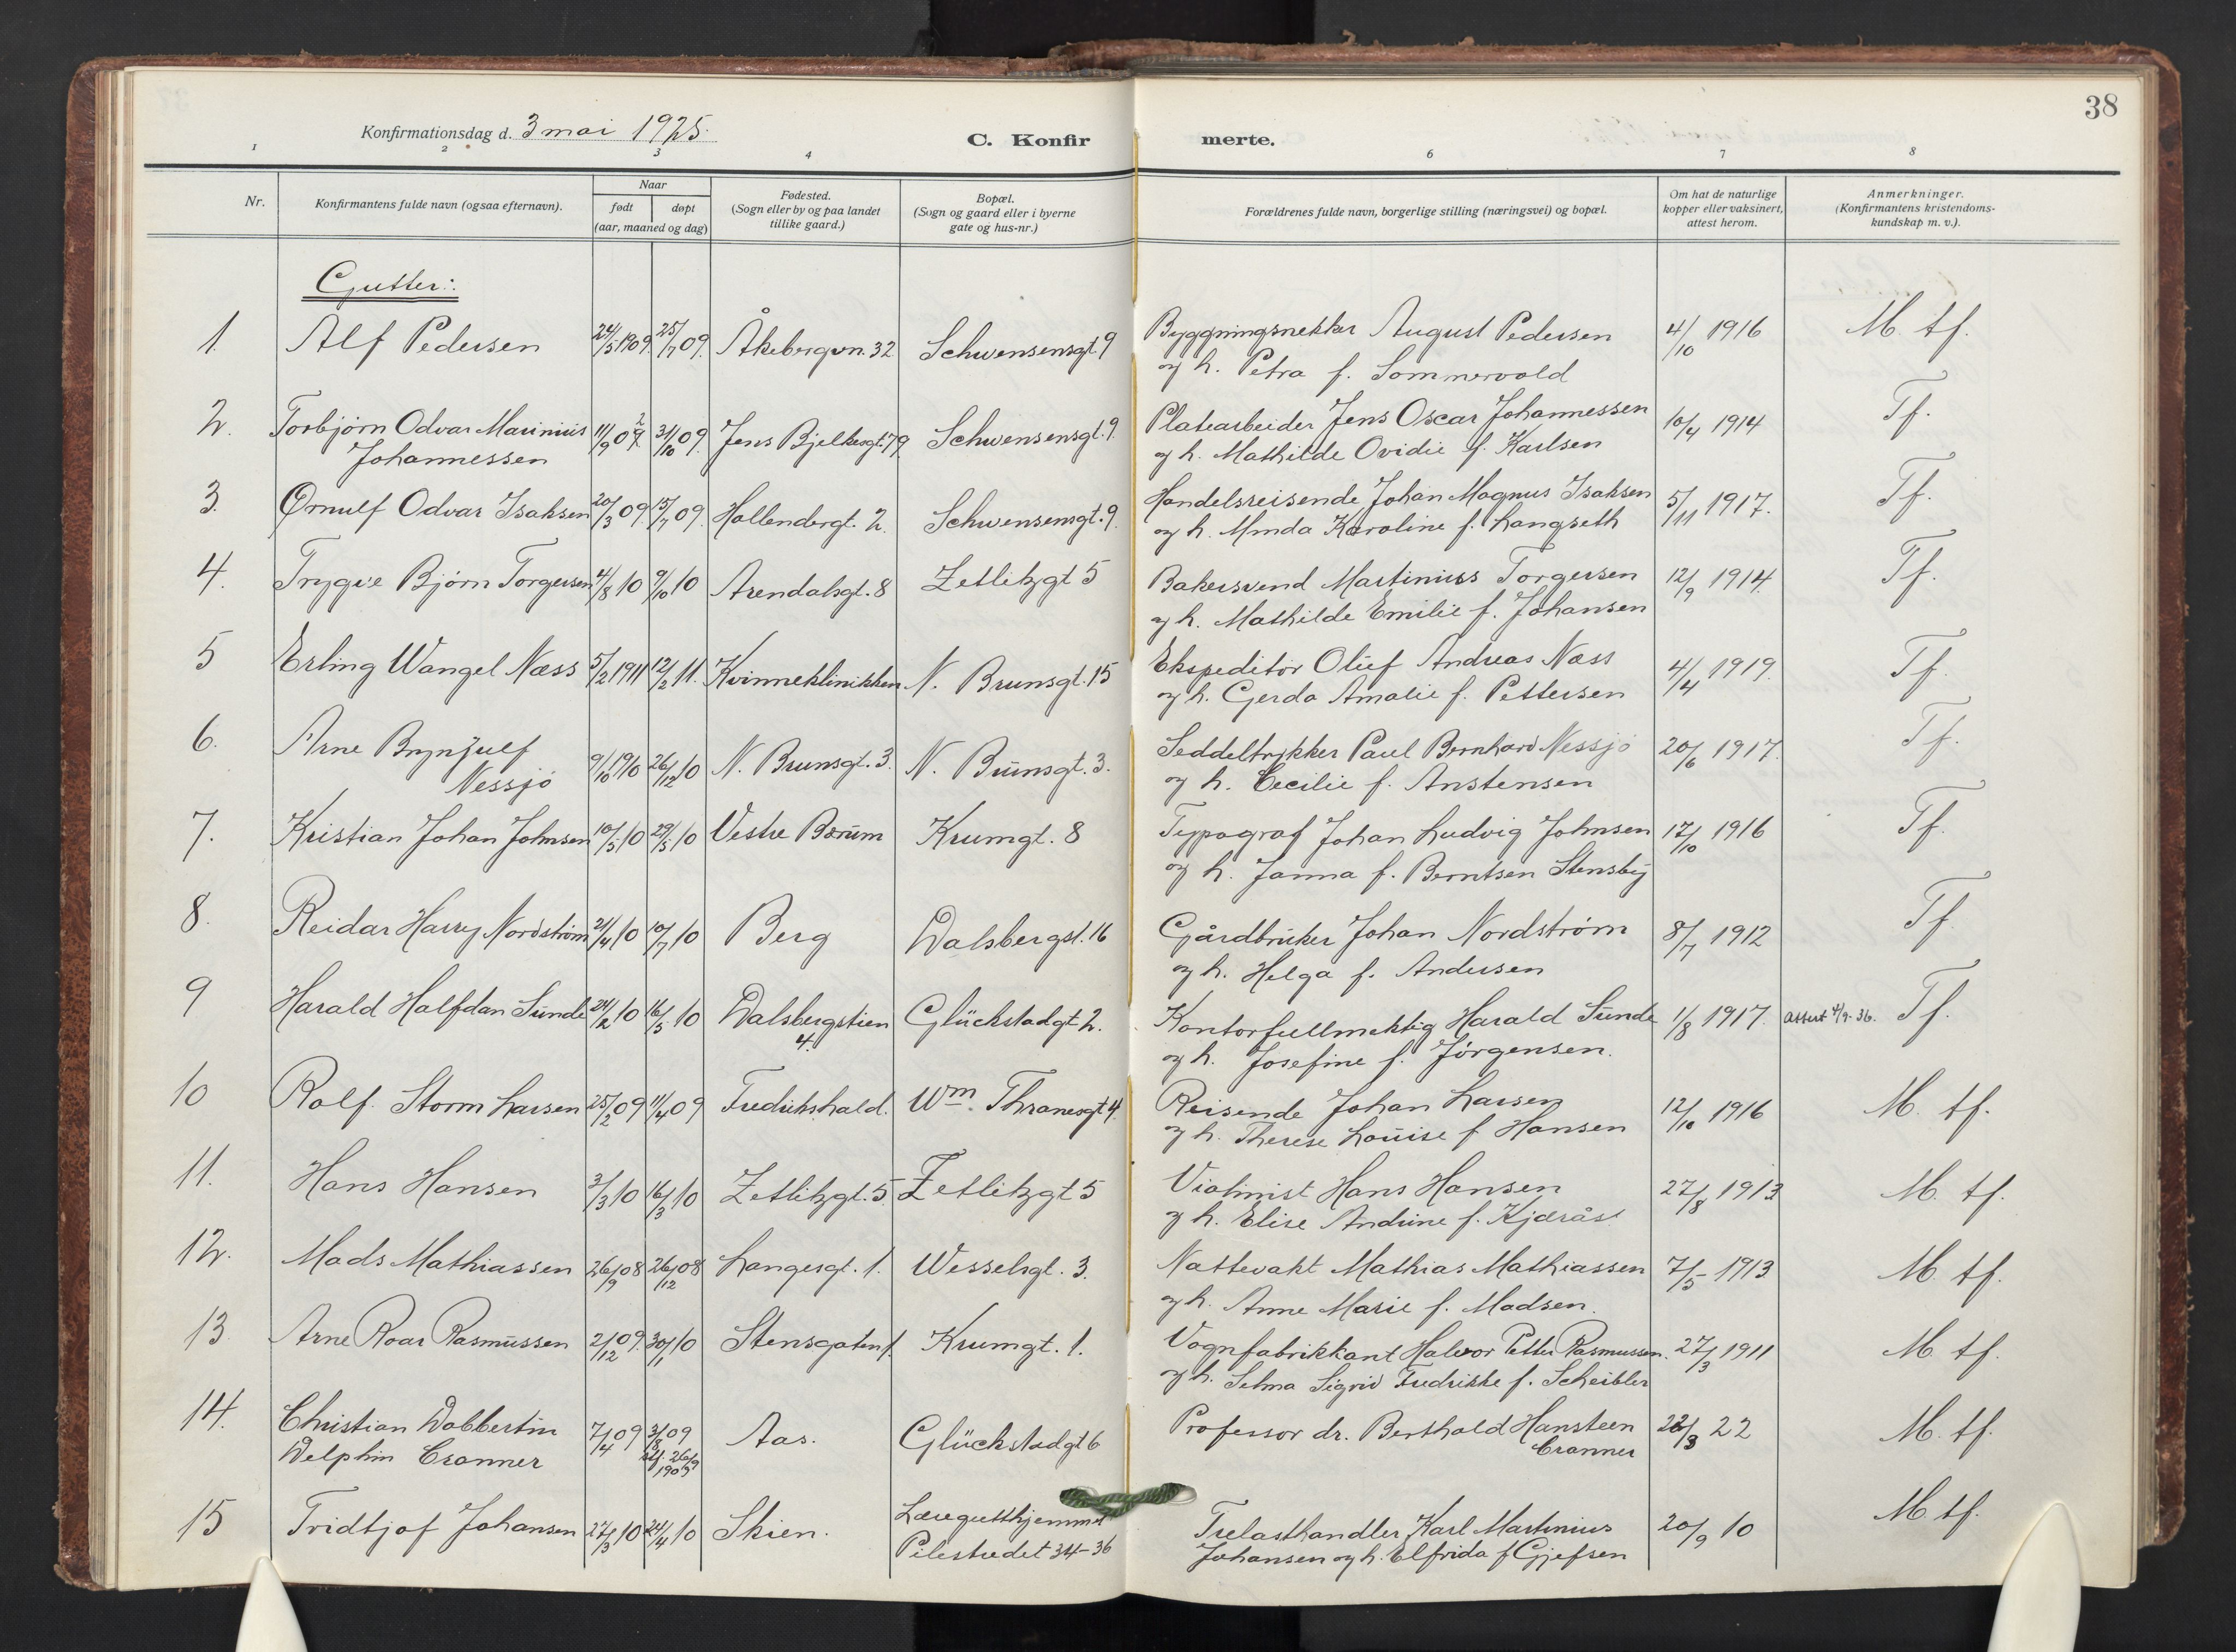 38
Konfirmationsdag d. 3 mai 1925.
C. Konfirmerte.
1 2 3 4 6 7 8
Nr.
Konfirmantens fulde navn (ogsaa efternavn).
Naar
født døpt
(aar, maaned og dag)
Fødested.
(Sogn eller by og paa landet
tillike gaard.)
Bopæl.
(Sogn og gaard eller i byerne
gate og hus-nr.)
Forældrenes fulde navn, borgerlige stilling (næringsvei) og bopæl.
Om hat de naturlige
kopper eller vaksinert,
attest herom.
Anmerkninger.
(Konfirmantens kristendoms-
kundskap m. v.).
Gutter:
1. Alf Pedersen 24/5 1909. 25/7 09. Åkebergvn. 32 Schwensensgt. 9 Byggningsnekker August Pedersen 4/10 1916 M. tf.
og h. Petra f. Sommervold
2. Torbjørn Odvar Marinius 11/9 09 31/10 09. Jens Bjelkesgt. 79 Schwensensgt. 9. Platearbeider Jens Oscar Johannessen 10/4 1914 Tf.
Johannessen og h. Mathilde Ovidie f. Karlsen
3. Ørnulf Odvar Isaksen 20/3 09. 15/7 09. Hollendergt. 2. Schwensensgt. 9. Handelsreisende Johan Magnus Isaksen 5/11 1917. Tf.
og h. Minda Karoline f. Langseth
4. Trygve Bjørn Torgersen 4/8 10 9/10 10 Arendalsgt. 8 Zetlitzgt 5 Bakersvend Martinius Torgersen 12/9 1914. Tf.
og h. Mathilde Emilie f. Johansen
5 Erling Wangel Næss 5/2 1911 12/2 11. Kvinneklinikken N. Brunsgt. 15 Ekspeditør Oluf Andreas Næss 4/4 1919. Tf.
og h. Gerda Amalie f. Pettersen
6. Arne Brynjulf 9/10 1910 26/12 10 N. Brunsgt. 3. N. Brunsgt. 3. Seddeltrykker Paul Bernhard Nessjø 20/6 1917. Tf.
Nessjø og h. Cecilie f. Anstensen
7. Kristian Johan Johnsen 10/5 10 29/5 10 Vestre Bærum Krumgt. 8 Typograf Johan Ludvig Johnsen 17/10 1916 Tf.
og h. Janna f. Berntsen Stensby
8. Reidar Harry Nordstrøm 21/4 10 10/7 10 Berg Dalsbergst. 16 Gårdbruker Johan Nordstrøm 8/7 1912 Tf.
og h. Helga f. Andersen
9 Harald Halfdan Sunde 24/2 10 16/5 10 Dalsbergstien Glückstadgt 2. Kontorfullmektig Harald Sunde 1/8 1917. Attest 4/9-36. Tf.
4. og h. Josefine f. Jørgensen.
10 Rolf Storm Larsen 25/2 09 11/4 09 Fredrikshald. Wm. Thranesgt 4. Reisende Johan Larsen 12/10 1916 M. tf.
og h. Therese Louise f Hansen
11. Hans Hansen 3/3 10 16/3 10 Zetlitzgt. 5. Zetlitzgt 5 Violinist Hans Hansen 27/8 1913 M. tf.
og h. Elise Andrine f. Kjærås
12. Mads Mathiassen 26/9 08 26/12 08 Langesgt. 1. Wesselsgt. 3. Nattevakt Mathias Mathiassen 7/5 1913 M. tf.
og h. Anne Marie f. Madsen.
13 Arne Roar Rasmussen 2/12 09. 30/1 10 Stensgaten 1. Krumgt. 1. Vognfabrikkant Halvor Petter Rasmussen. 27/3 1911 M. tf.
og h. Selma Sigrid Fredrikke f. Scheibler
14. Christian Dobbertin 7/4 09 3/8 09 Aas. Glückstadgt 6 Professor dr. Berthold Hansteen 22/3 22 M. tf.
Delphin Cranner 26/9 1909 Cranner
15 Fridtjof Johansen 27/3 10 24/4 10 Skien. Læregutthjemmet Trelasthandler Karl Martinius 20/9 10 M. tf.
Pilestredet 34-36 Johansen og h. Elfrida f Gjefsen